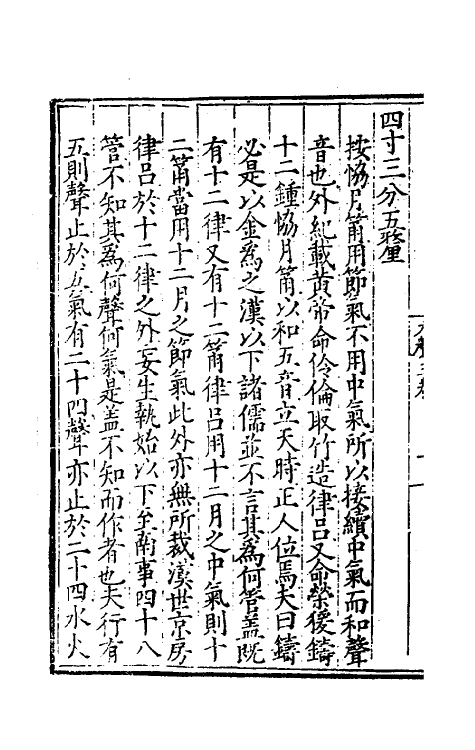 四寸三分五釐
按協月筩用節氣不用中氣所以接續中氣而和聲
音也外紀載黃帝命伶倫取竹造律呂又命榮後鑄
十二鍾協月筩以和五音立天時正人位焉夫曰鑄
必是以金爲之漢以下諸儒並不言其爲何管蓋旣
有十二律又有十二筩律呂用十二月之中氣則十
二筩當用十二月之節氣此外亦無所裁漢世京房
律呂於十二律之外妄生執始以下至南事四十八
管不知其爲何聲何氣是盖不知而作者也夫行有
五則聲止於五氣有二十四聲亦止於二十四水火